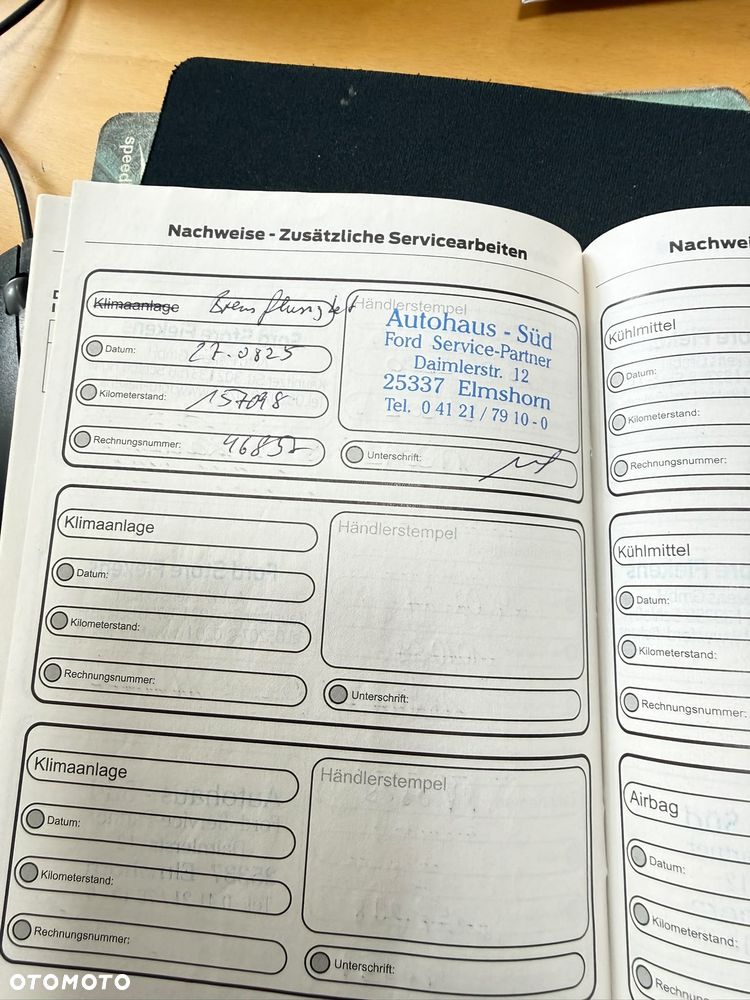 speed
Nachweise - Zusätzliche Servicearbeiten
Klimaanlage Bremsflüssigkeit
Händlerstempel
Autohaus - Süd
Ford Service-Partner
Daimlerstr. 12
25337 Elmshorn
Tel. 0 41 21 / 79 10 - 0
Datum: 27.0825
Kilometerstand: 157098
Rechnungsnummer: 46857
Unterschrift:
Klimaanlage
Händlerstempel
Datum:
Kilometerstand:
Rechnungsnummer:
Unterschrift:
Klimaanlage
Händlerstempel
Datum:
Kilometerstand:
Rechnungsnummer:
Unterschrift:
Nachwei
Kühlmittel
Datum:
Kilometerstand:
Rechnungsnummer:
Kühlmittel
Datum:
Kilometerstand:
Rechnungsnummer:
Airbag
Datum:
Kilometerstand:
Rechnungsnu
OTOMOTO